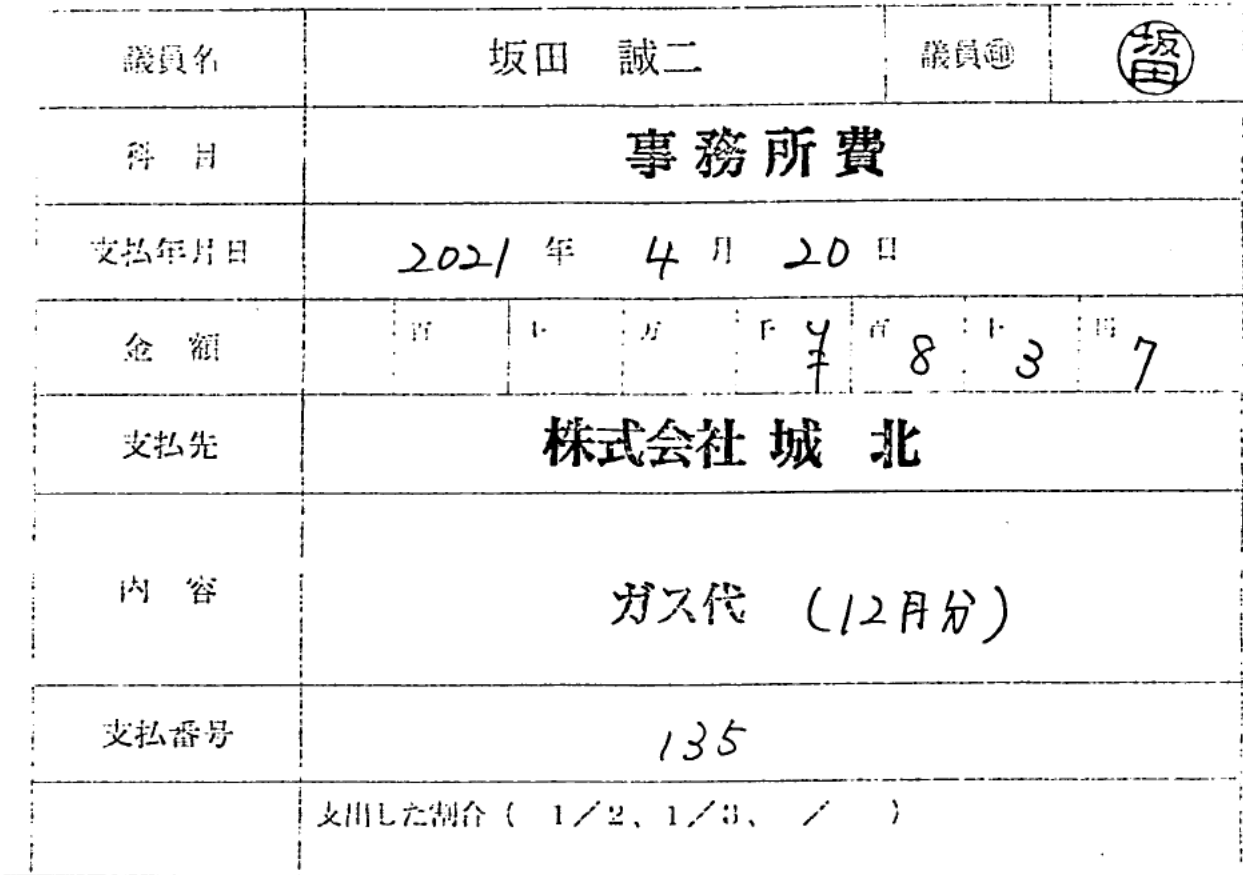 議員名 坂田 誠二 議員㊞ 坂田
科 目 事務所費
支払年月日 2021 年 4 月 20 日
金 額 百 十 万 千 ¥ 百 8 十 3 円 7
支払先 株式会社 城 北
内 容 ガス代 (12月分)
支払番号 135
支出した割合( 1/2、1/3、 / )